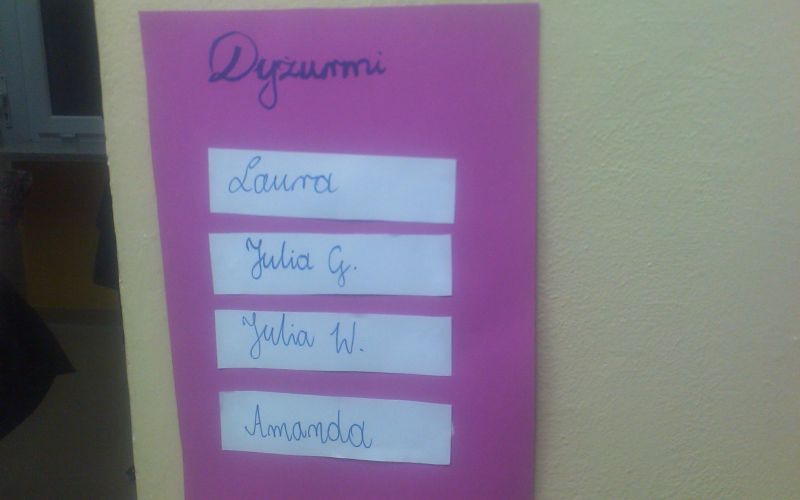 Dyżurni
Laura
Julia G.
Julia W.
Amanda